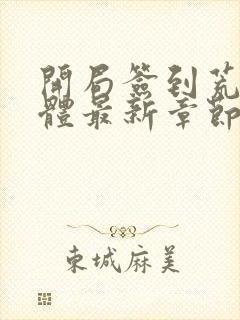 開局簽到荒
體最新章節
東城麻美